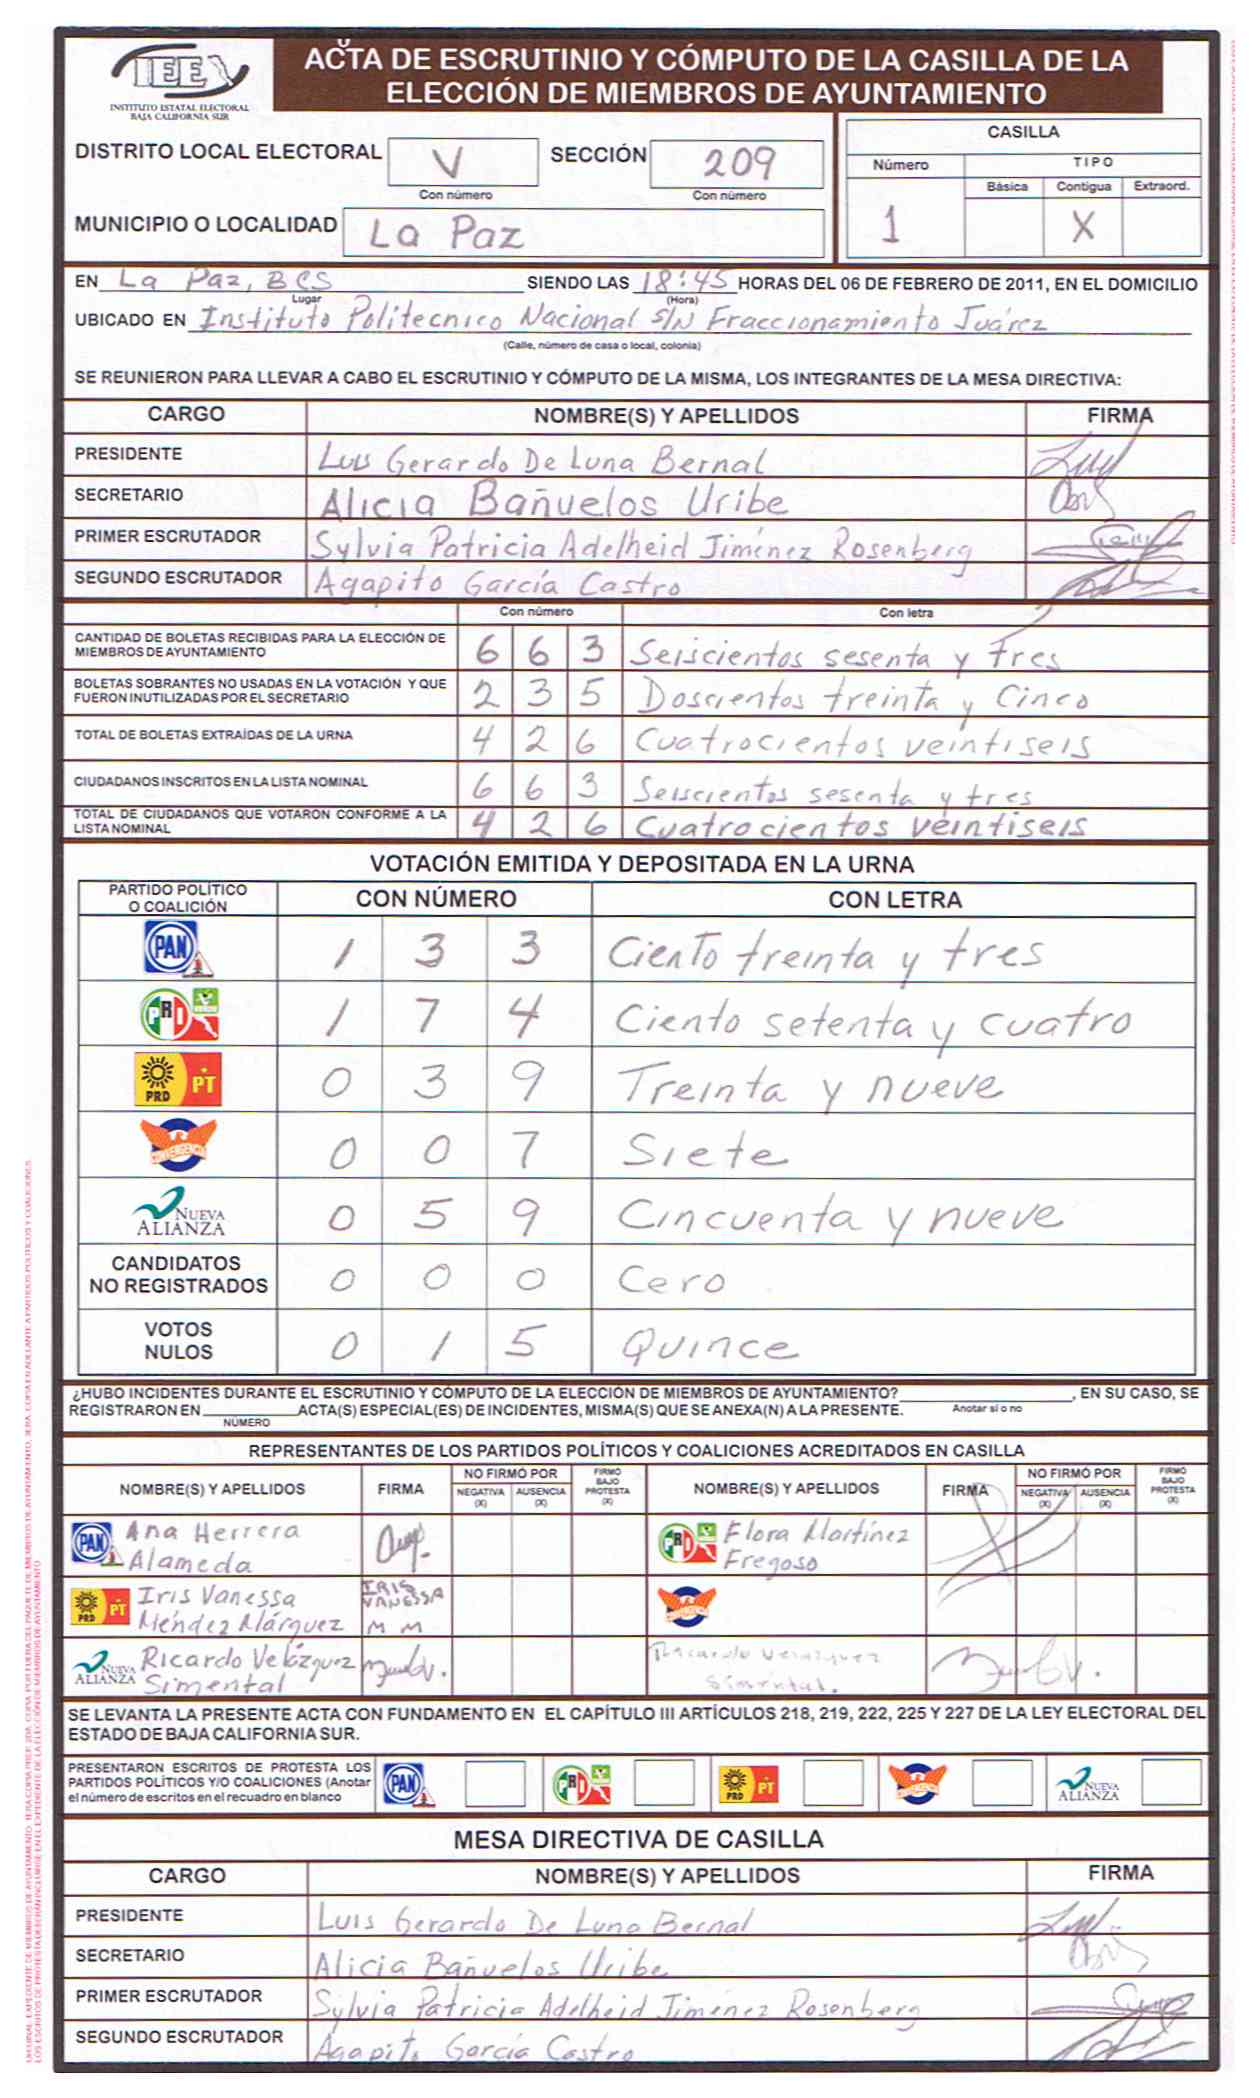 IEE
INSTITUTO ESTATAL ELECTORAL
BAJA CALIFORNIA SUR
ACTA DE ESCRUTINIO Y CÓMPUTO DE LA CASILLA DE LA
ELECCIÓN DE MIEMBROS DE AYUNTAMIENTO
DISTRITO LOCAL ELECTORAL V SECCIÓN 209
Con número Con número
MUNICIPIO O LOCALIDAD La Paz
CASILLA
Número TIPO
Básica Contigua Extraord.
1 X
EN La Paz, BCS SIENDO LAS 18:45 HORAS DEL 06 DE FEBRERO DE 2011, EN EL DOMICILIO
Lugar (Hora)
UBICADO EN Instituto Politecnico Nacional S/N Fraccionamiento Juárez
(Calle, número de casa o local, colonia)
SE REUNIERON PARA LLEVAR A CABO EL ESCRUTINIO Y CÓMPUTO DE LA MISMA, LOS INTEGRANTES DE LA MESA DIRECTIVA:
CARGO NOMBRE(S) Y APELLIDOS FIRMA
PRESIDENTE Luis Gerardo De Luna Bernal
SECRETARIO Alicia Bañuelos Uribe
PRIMER ESCRUTADOR Sylvia Patricia Adelheid Jiménez Rosenberg
SEGUNDO ESCRUTADOR Agapito García Castro
Con número Con letra
CANTIDAD DE BOLETAS RECIBIDAS PARA LA ELECCIÓN DE
MIEMBROS DE AYUNTAMIENTO 6 6 3 Seiscientos sesenta y tres
BOLETAS SOBRANTES NO USADAS EN LA VOTACIÓN Y QUE
FUERON INUTILIZADAS POR EL SECRETARIO 2 3 5 Doscientos treinta y Cinco
TOTAL DE BOLETAS EXTRAÍDAS DE LA URNA 4 2 6 Cuatrocientos veintiseis
CIUDADANOS INSCRITOS EN LA LISTA NOMINAL 6 6 3 Seiscientos sesenta y tres
TOTAL DE CIUDADANOS QUE VOTARON CONFORME A LA
LISTA NOMINAL 4 2 6 Cuatrocientos veintiseis
VOTACIÓN EMITIDA Y DEPOSITADA EN LA URNA
PARTIDO POLÍTICO
O COALICIÓN CON NÚMERO CON LETRA
PAN 1 3 3 Ciento treinta y tres
PRI VERDE 1 7 4 Ciento setenta y cuatro
PRD PT 0 3 9 Treinta y nueve
CONVERGENCIA 0 0 7 Siete
NUEVA ALIANZA 0 5 9 Cincuenta y nueve
CANDIDATOS
NO REGISTRADOS 0 0 0 Cero
VOTOS
NULOS 0 1 5 Quince
¿HUBO INCIDENTES DURANTE EL ESCRUTINIO Y CÓMPUTO DE LA ELECCIÓN DE MIEMBROS DE AYUNTAMIENTO? , EN SU CASO, SE
REGISTRARON EN ACTA(S) ESPECIAL(ES) DE INCIDENTES, MISMA(S) QUE SE ANEXA(N) A LA PRESENTE. Anotar sí o no
NÚMERO
REPRESENTANTES DE LOS PARTIDOS POLÍTICOS Y COALICIONES ACREDITADOS EN CASILLA
NOMBRE(S) Y APELLIDOS FIRMA NO FIRMÓ POR NEGATIVA (X) AUSENCIA (X) FIRMÓ BAJO PROTESTA (X) NOMBRE(S) Y APELLIDOS FIRMA NO FIRMÓ POR NEGATIVA (X) AUSENCIA (X) FIRMÓ BAJO PROTESTA (X)
PAN Ana Herrera PRI Flora Martínez
Alameda Fregoso
PRD PT Iris Vanessa IRIS VANESSA CONVERGENCIA
Méndez Márquez M M
NUEVA ALIANZA Ricardo Velázquez Ricardo Velazquez
Simental Simental.
SE LEVANTA LA PRESENTE ACTA CON FUNDAMENTO EN EL CAPÍTULO III ARTÍCULOS 218, 219, 222, 225 Y 227 DE LA LEY ELECTORAL DEL
ESTADO DE BAJA CALIFORNIA SUR.
PRESENTARON ESCRITOS DE PROTESTA LOS
PARTIDOS POLÍTICOS Y/O COALICIONES (Anotar
el número de escritos en el recuadro en blanco
PAN PRI PRD PT CONVERGENCIA NUEVA ALIANZA
MESA DIRECTIVA DE CASILLA
CARGO NOMBRE(S) Y APELLIDOS FIRMA
PRESIDENTE Luis Gerardo De Luna Bernal
SECRETARIO Alicia Bañuelos Uribe
PRIMER ESCRUTADOR Sylvia Patricia Adelheid Jiménez Rosenberg
SEGUNDO ESCRUTADOR Agapito García Castro